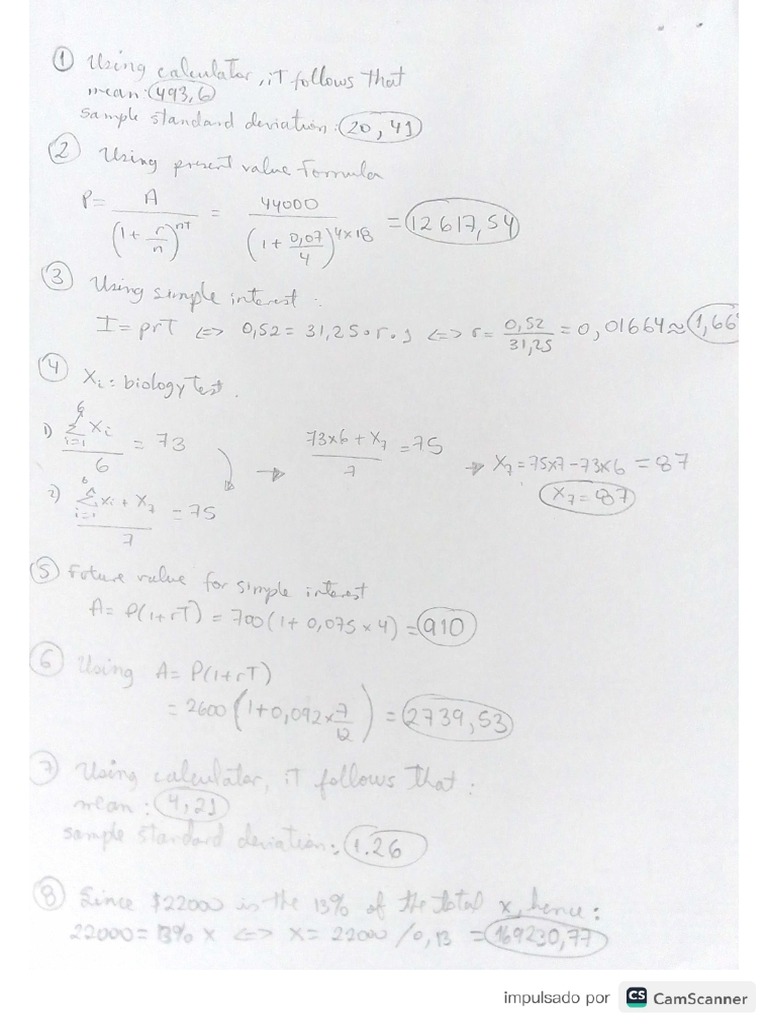 ① Using calculator, it follows that
mean: 493,6
sample standard deviation: 20,41
② Using present value formula
P = A / (1 + r/n)^nT = 44000 / (1 + 0,07/4)^4×18 = 12617,54
③ Using simple interest:
I = prT <=> 0,52 = 31,25 • r • 1 <=> r = 0,52/31,25 = 0,01664 ≈ 1,66
④ Xi: biology test.
1) Σ(i=1 to 6) Xi / 6 = 73 → (73×6 + X7) / 7 = 75 → X7 = 75×7 – 73×6 = 87
X7 = 87
2) (Σ(i=1 to 6) Xi + X7) / 7 = 75
⑤ Future value for simple interest
A = P(1+rT) = 700(1 + 0,075 × 4) = 910
⑥ Using A = P(1+rT)
= 2600 (1 + 0,092 × 7/12) = 2739,53
⑦ Using calculator, it follows that:
mean: 4,21
sample standard deviation: 1.26
⑧ Since $22000 is the 13% of the total x, hence:
22000 = 13% x <=> x = 22000 / 0,13 = 169230,77
impulsado por CS CamScanner